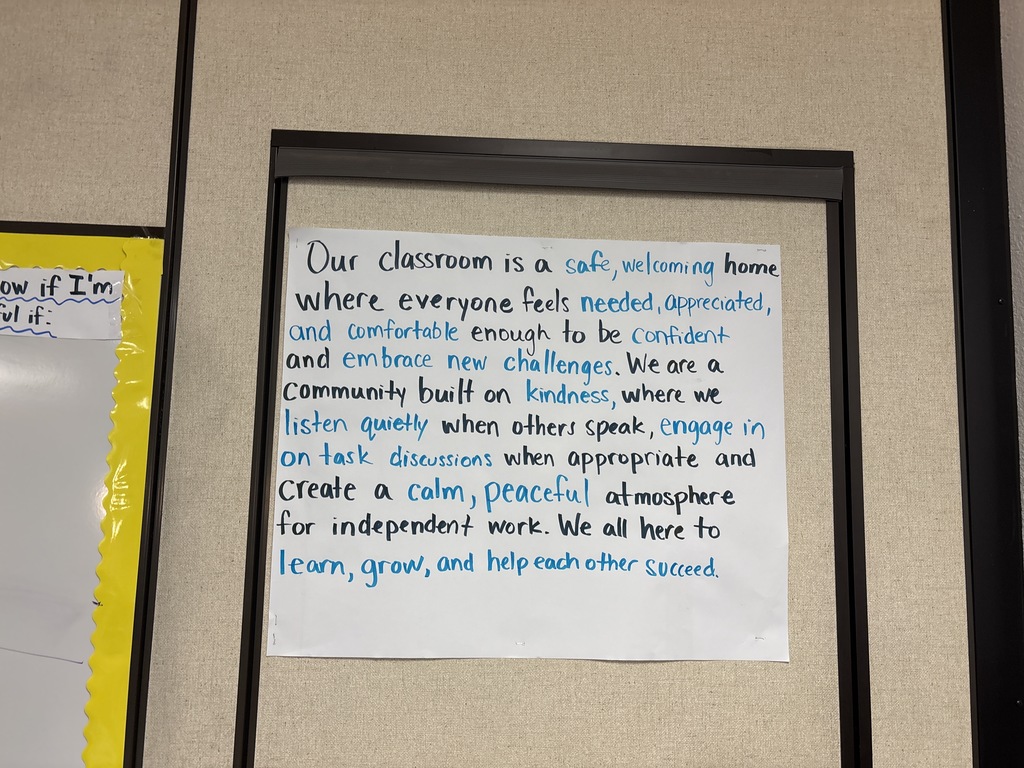 Our classroom is a safe, welcoming home
where everyone feels needed, appreciated,
and comfortable enough to be confident
and embrace new challenges. We are a
community built on kindness, where we
listen quietly when others speak, engage in
on task discussions when appropriate and
create a calm, peaceful atmosphere
for independent work. We all here to
learn, grow, and help each other succeed.
ow if I'm
ful if: